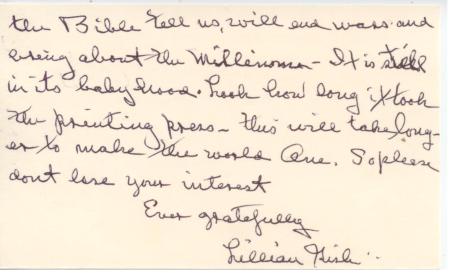 the Bible tell us, will end wars and
bring about the Millinoma - It is still
in its baby hood. Look how long it took
the printing press - this will take long-
er to make the world One. So please
dont lose your interest
Ever gratefully
Lillian Gish